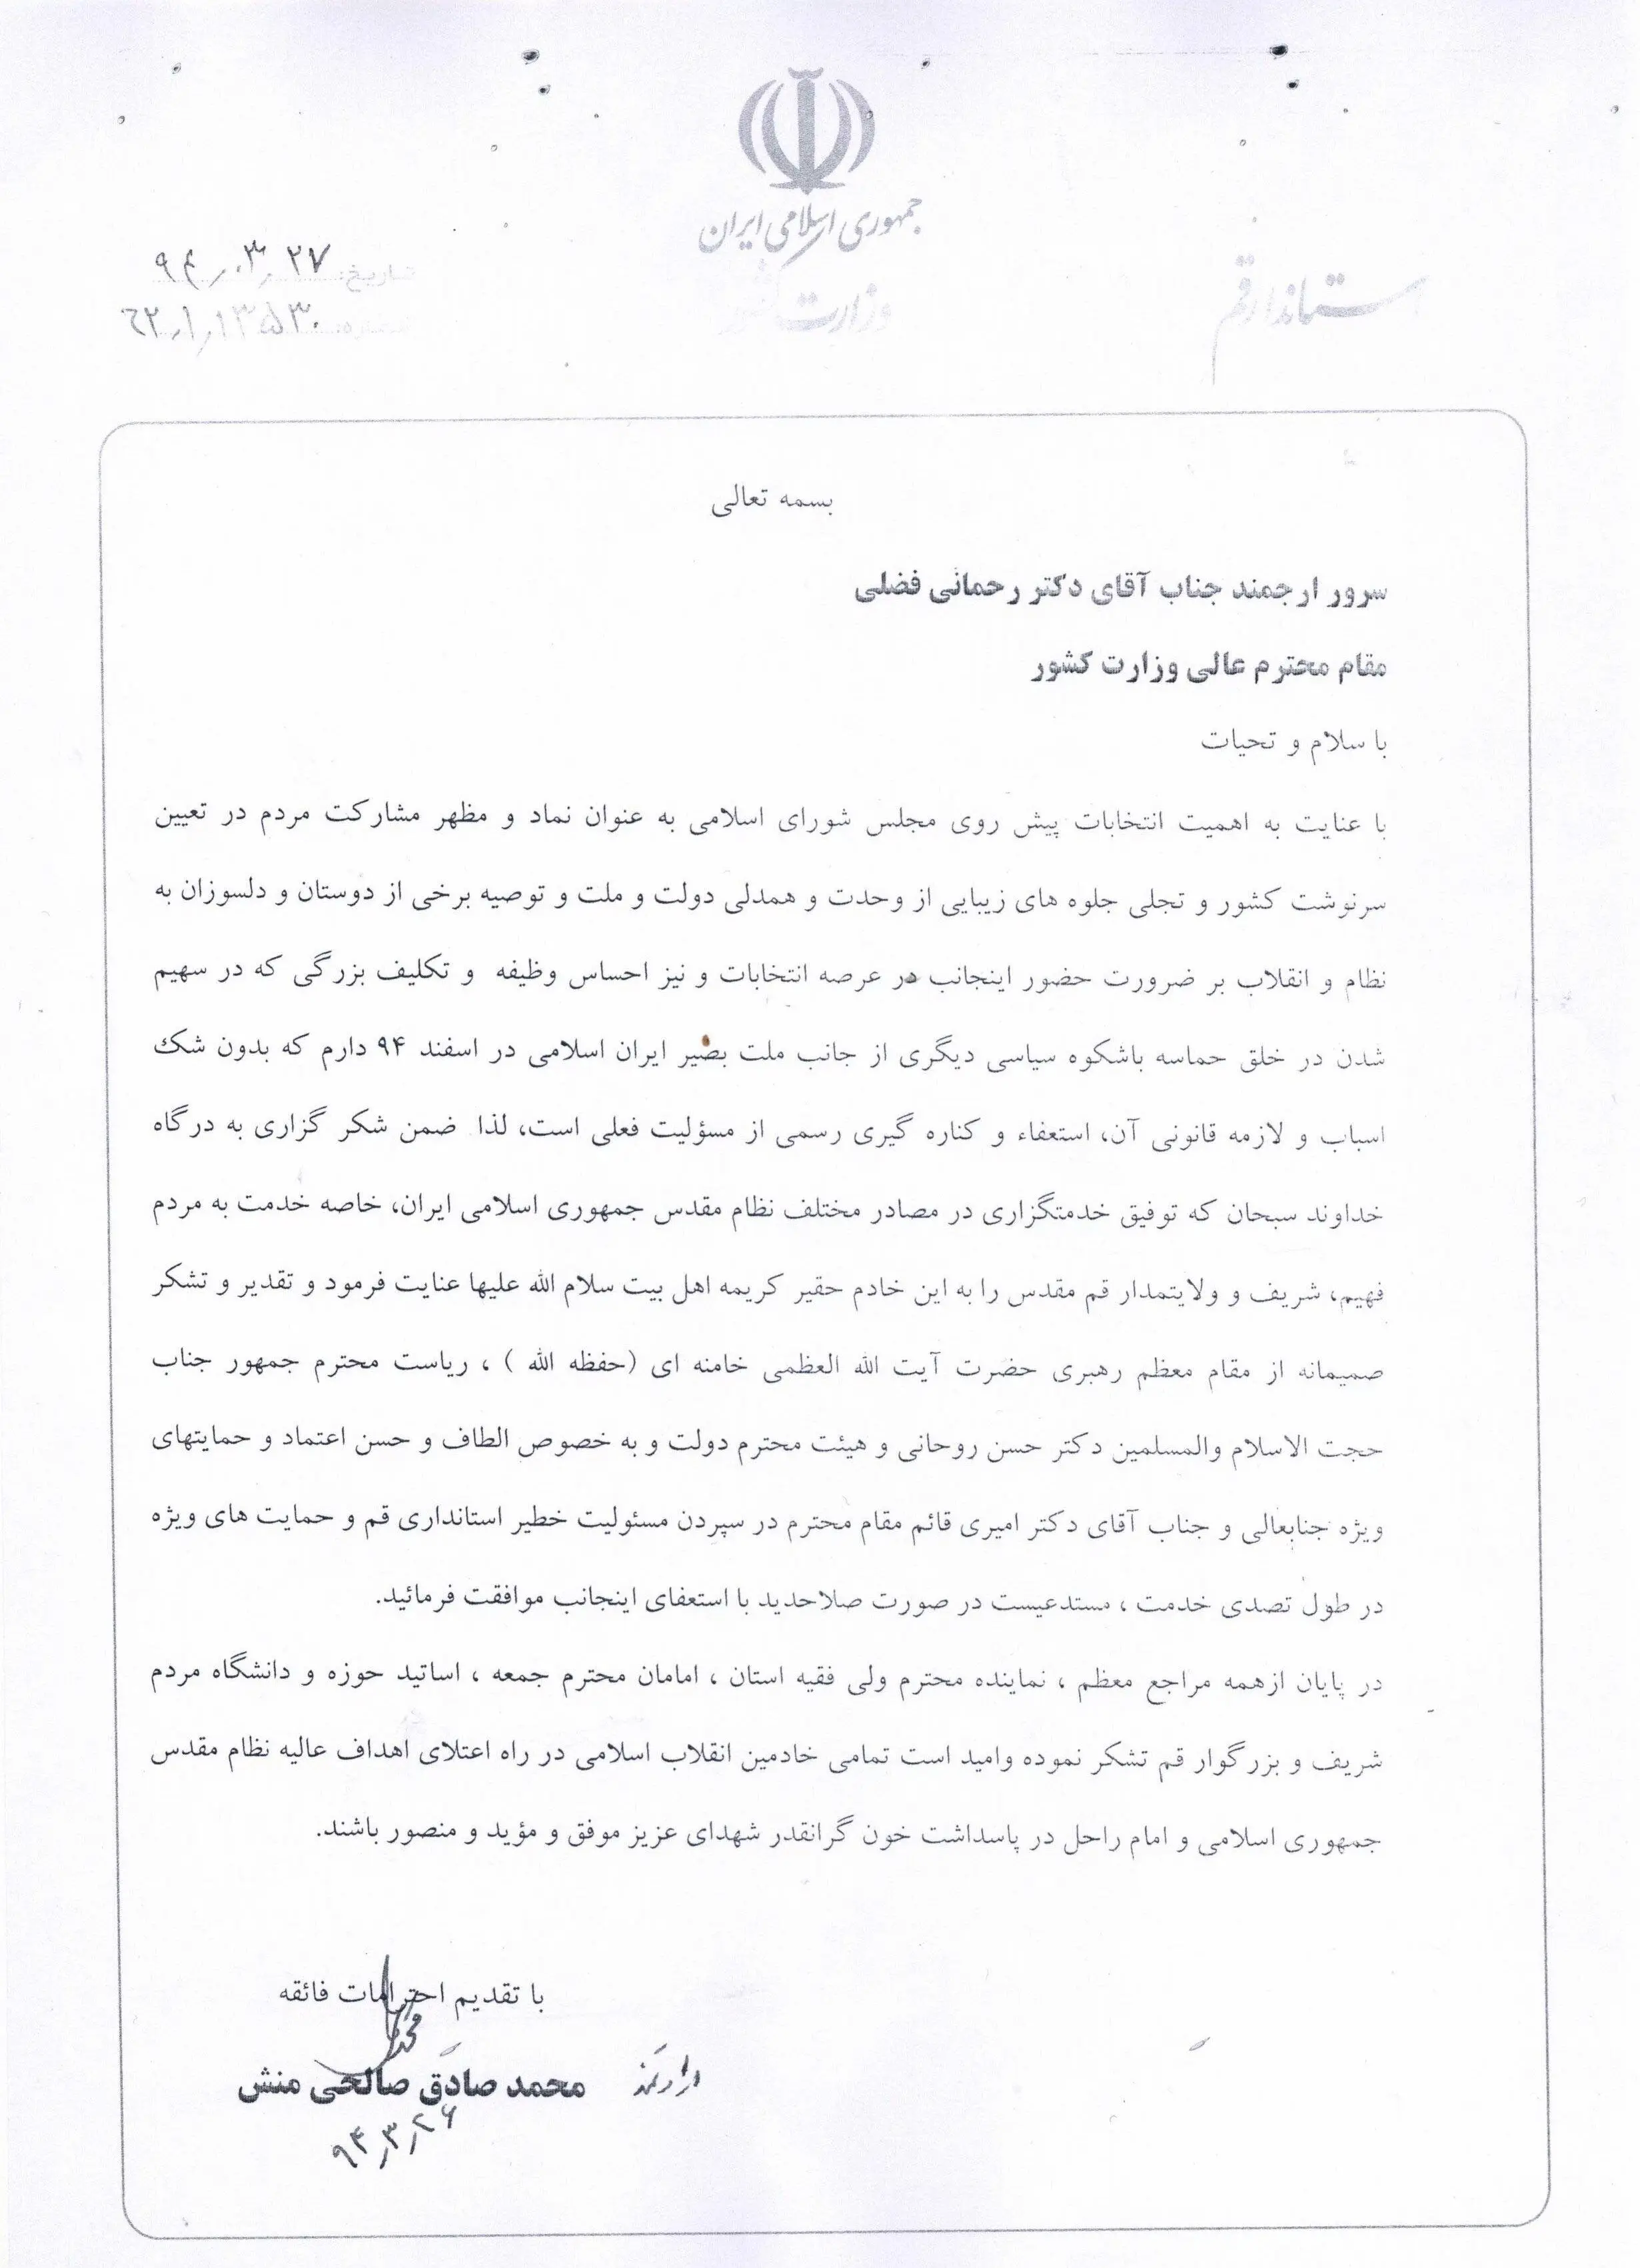 جمهوری اسلامی ایران
وزارت کشور
استاندار قم
تاریخ: ۹۴/۰۳/۲۷
شماره: ۶۲/۱/۱۳۵۳۰
بسمه تعالی
سرور ارجمند جناب آقای دکتر رحمانی فضلی
مقام محترم عالی وزارت کشور
با سلام و تحیات
با عنایت به اهمیت انتخابات پیش روی مجلس شورای اسلامی به عنوان نماد و مظهر مشارکت مردم در تعیین
سرنوشت کشور و تجلی جلوه های زیبایی از وحدت و همدلی دولت و ملت و توصیه برخی از دوستان و دلسوزان به
نظام و انقلاب بر ضرورت حضور اینجانب در عرصه انتخابات و نیز احساس وظیفه و تکلیف بزرگی که در سهیم
شدن در خلق حماسه باشکوه سیاسی دیگری از جانب ملت بصیر ایران اسلامی در اسفند ۹۴ دارم که بدون شک
اسباب و لازمه قانونی آن، استعفاء و کناره گیری رسمی از مسؤلیت فعلی است، لذا ضمن شکر گزاری به درگاه
خداوند سبحان که توفیق خدمتگزاری در مصادر مختلف نظام مقدس جمهوری اسلامی ایران، خاصه خدمت به مردم
فهیم، شریف و ولایتمدار قم مقدس را به این خادم حقیر کریمه اهل بیت سلام الله علیها عنایت فرمود و تقدیر و تشکر
صمیمانه از مقام معظم رهبری حضرت آیت الله العظمی خامنه ای (حفظه الله ) ، ریاست محترم جمهور جناب
حجت الاسلام والمسلمین دکتر حسن روحانی و هیئت محترم دولت و به خصوص الطاف و حسن اعتماد و حمایتهای
ویژه جنابعالی و جناب آقای دکتر امیری قائم مقام محترم در سپردن مسئولیت خطیر استانداری قم و حمایت های ویژه
در طول تصدی خدمت ، مستدعیست در صورت صلاحدید با استعفای اینجانب موافقت فرمائید.
در پایان ازهمه مراجع معظم ، نماینده محترم ولی فقیه استان ، امامان محترم جمعه ، اساتید حوزه و دانشگاه مردم
شریف و بزرگوار قم تشکر نموده وامید است تمامی خادمین انقلاب اسلامی در راه اعتلای اهداف عالیه نظام مقدس
جمهوری اسلامی و امام راحل در پاسداشت خون گرانقدر شهدای عزیز موفق و مؤید و منصور باشند.
با تقدیم احترامات فائقه
ارادتمند محمد صادق صالحی منش
۹۴/۳/۲۶